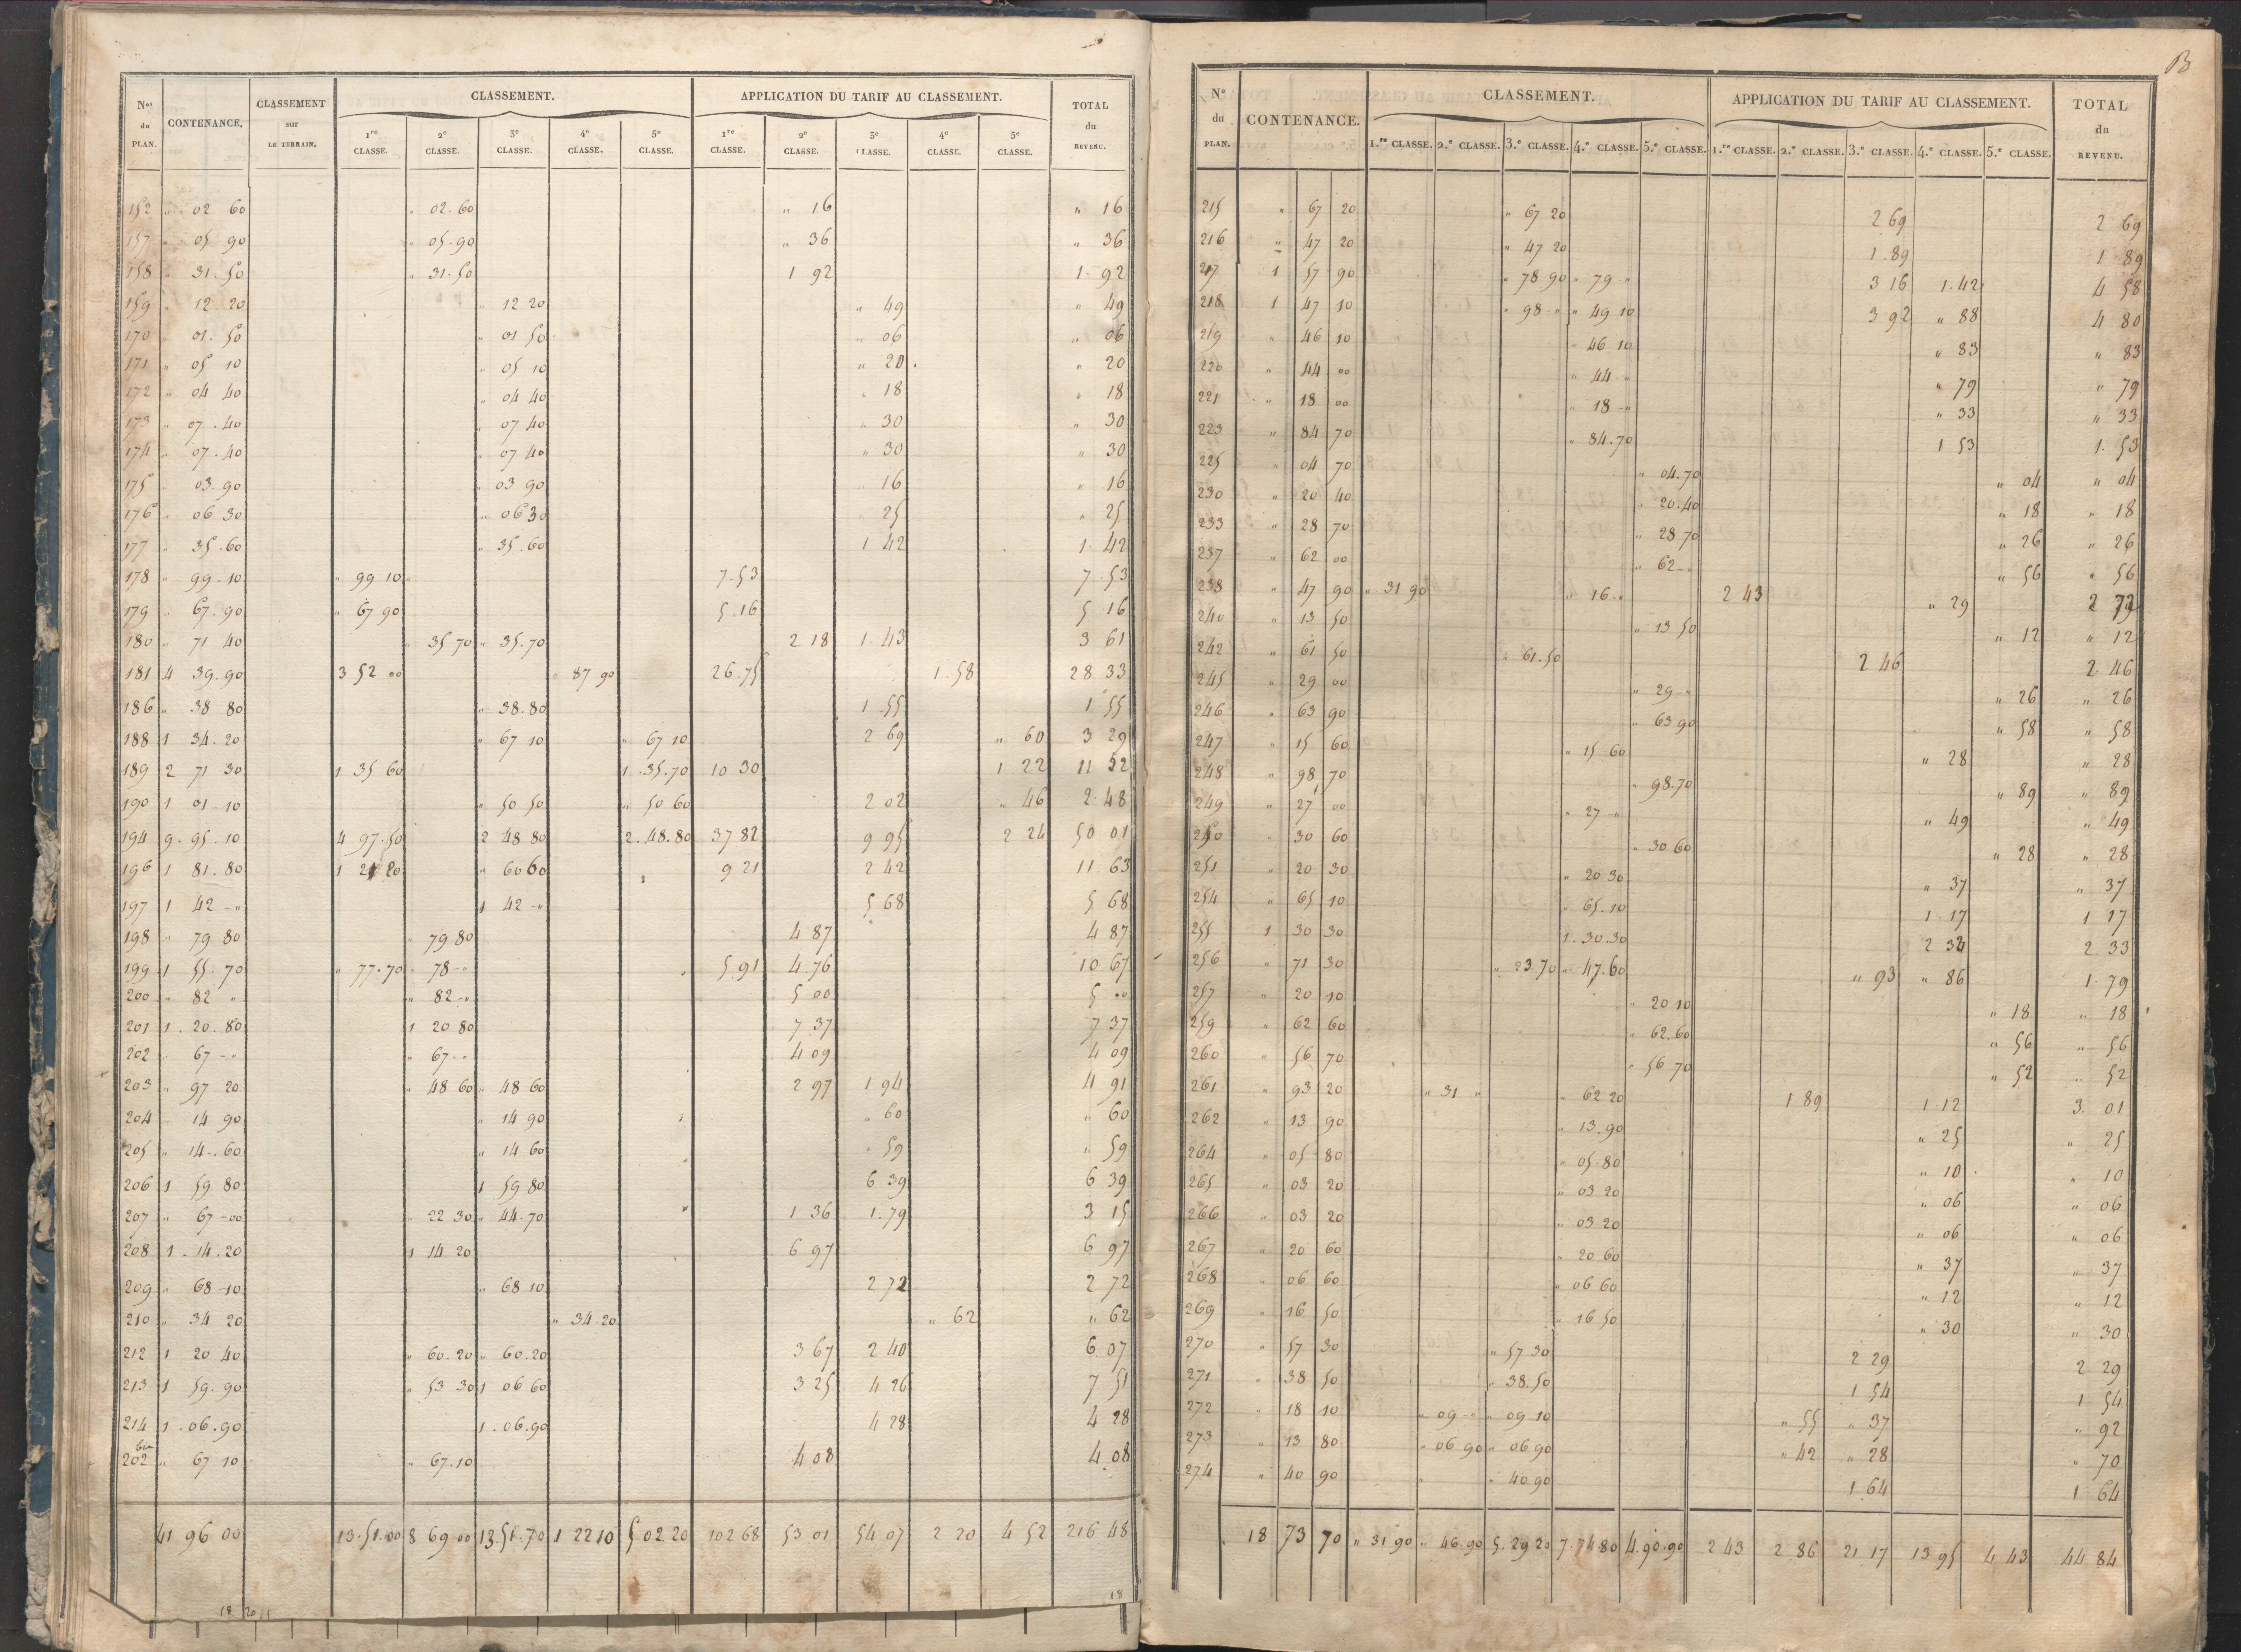 Nos du PLAN. CONTENANCE. CLASSEMENT sur LE TERRAIN. CLASSEMENT. APPLICATION DU TARIF AU CLASSEMENT. TOTAL du REVENU.
1re CLASSE. 2e CLASSE. 3e CLASSE. 4e CLASSE. 5e CLASSE. 1re CLASSE. 2e CLASSE. 3e CLASSE. 4e CLASSE. 5e CLASSE.
152 " 02 60 " 02.60 " 16 " 16
157 " 05 90 " 05.90 " 36 " 36
158 " 31.50 " 31.50 1 92 1.92
159 " 12 20 " 12 20 " 49 " 49
170 " 01.50 " 01 50 " 06 " 06
171 " 05 10 " 05 10 " 20 " 20
172 " 04 40 " 04 40 " 18 " 18
173 " 07.40 " 07 40 " 30 " 30
174 " 07.40 " 07 40 " 30 " 30
175 " 03.90 " 03 90 " 16 " 16
176 " 06 30 " 06 30 " 25 " 25
177 " 35.60 " 35.60 1 42 1 42
178 " 99-10 " 99 10 7.53 7.53
179 " 67.90 " 67 90 5.16 5 16
180 " 71 40 " 35 70 " 35.70 2 18 1.43 3 61
181 4 39.90 3 52 00 " 87 90 26.75 1.58 28 33
186 " 38 80 " 38.80 1.55 1 55
188 1 34.20 " 67 10 " 67 10 2 69 " 60 3 29
189 2 71 30 1 35 60 1.35.70 10 30 1 22 11 52
190 1 01 10 " 50 50 " 50 60 2 02 " 46 2.48
194 9.95.10 4 97.50 2 48 80 2.48.80 37 82 9 95 2 24 50 01
196 1 81.80 1 21 20 " 60 60 9 21 2 42 11 63
197 1 42 -" 1 42 -" 5 68 5 68
198 " 79 80 " 79 80 4 87 4 87
199 1 55.70 " 77.70 " 78 -" 5.91 4.76 10 67
200 " 82 " " 82 -" 5 00 5 00
201 1.20.80 1 20 80 7 37 7 37
202 " 67 -" " 67 -" 4 09 4 09
203 " 97 20 " 48 60 " 48 60 2 97 1 94 4 91
204 " 14 90 " 14 90 " 60 " 60
205 " 14.60 " 14 60 " 59 " 59
206 1 59 80 1 59 80 6 39 6 39
207 " 67-00 " 22 30 " 44.70 1 36 1.79 3 15
208 1.14.20 1 14 20 6 97 6 97
209 " 68-10 " 68 10 2 72 2 72
210 " 34 20 " 34 20 " 62 " 62
212 1 20 40 " 60.20 " 60.20 3 67 2 40 6 07
213 1 59.90 " 53 30 1 06 60 3 25 4 26 7 51
214 1.06.90 1.06.90 4 28 4 28
202 bis " 67 10 " 67.10 4 08 4 08
41 96 00 13.51.00 8 69 00 13.51.70 1 22 10 5 02.20 102 68 53 01 54 07 2 20 4 52 216 48
18 20 18
13
No du PLAN. CONTENANCE. CLASSEMENT. APPLICATION DU TARIF AU CLASSEMENT. TOTAL du REVENU.
1.re CLASSE. 2.e CLASSE. 3.e CLASSE. 4.e CLASSE. 5.e CLASSE. 1.re CLASSE. 2.e CLASSE. 3.e CLASSE. 4.e CLASSE. 5.e CLASSE.
215 " 67 20 " 67 20 2 69 2 69
216 " 47 20 " 47 20 1.89 1 89
217 1 57 90 " 78 90 " 79 " 3 16 1.42 4 58
218 1 47 10 " 98-" " 49 10 3 92 " 88 4 80
219 " 46 10 " 46 10 " 83 " 83
220 " 44 00 " 44-" " 79 " 79
221 " 18 00 " 18-" " 33 " 33
223 " 84 70 " 84.70 1 53 1.53
225 " 04 70 " 04.70 " 04 " 04
230 " 20 40 " 20.40 " 18 " 18
233 " 28 70 " 28 70 " 26 " 26
237 " 62 00 " 62-" " 56 " 56
238 " 47 90 " 31 90 " 16-" 2 43 " 29 2 72
240 " 13 50 " 13 50 " 12 " 12
242 " 61 50 " 61.50 2 46 2 46
245 " 29 00 " 29-" " 26 " 26
246 " 63 90 " 63 90 " 58 " 58
247 " 15 60 " 15 60 " 28 " 28
248 " 98 70 " 98.70 " 89 " 89
249 " 27 00 " 27-" " 49 " 49
250 " 30 60 " 30 60 " 28 " 28
251 " 20 30 " 20 30 " 37 " 37
254 " 65 10 " 65.10 1.17 1 17
255 1 30 30 1.30.30 2 34 2 33
256 " 71 30 " 23.70 " 47.60 " 93 " 86 1.79
257 " 20 10 " 20 10 " 18 " 18
259 " 62 60 " 62.60 " 56 " 56
260 " 56 70 " 56 70 " 52 " 52
261 " 93 20 " 31 " " 62 20 1 89 1 12 3.01
262 " 13 90 " 13.90 " 25 " 25
264 " 05 80 " 05.80 " 10 " 10
265 " 03 20 " 03 20 " 06 " 06
266 " 03 20 " 03 20 " 06 " 06
267 " 20 60 " 20 60 " 37 " 37
268 " 06 60 " 06 60 " 12 " 12
269 " 16 50 " 16 50 " 30 " 30
270 " 57 30 " 57 30 2 29 2 29
271 " 38 50 " 38.50 1 54 1 54
272 " 18 10 " 09-" " 09 10 " 55 " 37 " 92
273 " 13 80 " 06 90 " 06 90 " 42 " 28 " 70
274 " 40 90 " 40 90 1 64 1 64
18 73 70 " 31 90 " 46.90 5.29 20 7.74 80 4.90.90 2 43 2 86 21 17 13 95 4 43 44 84